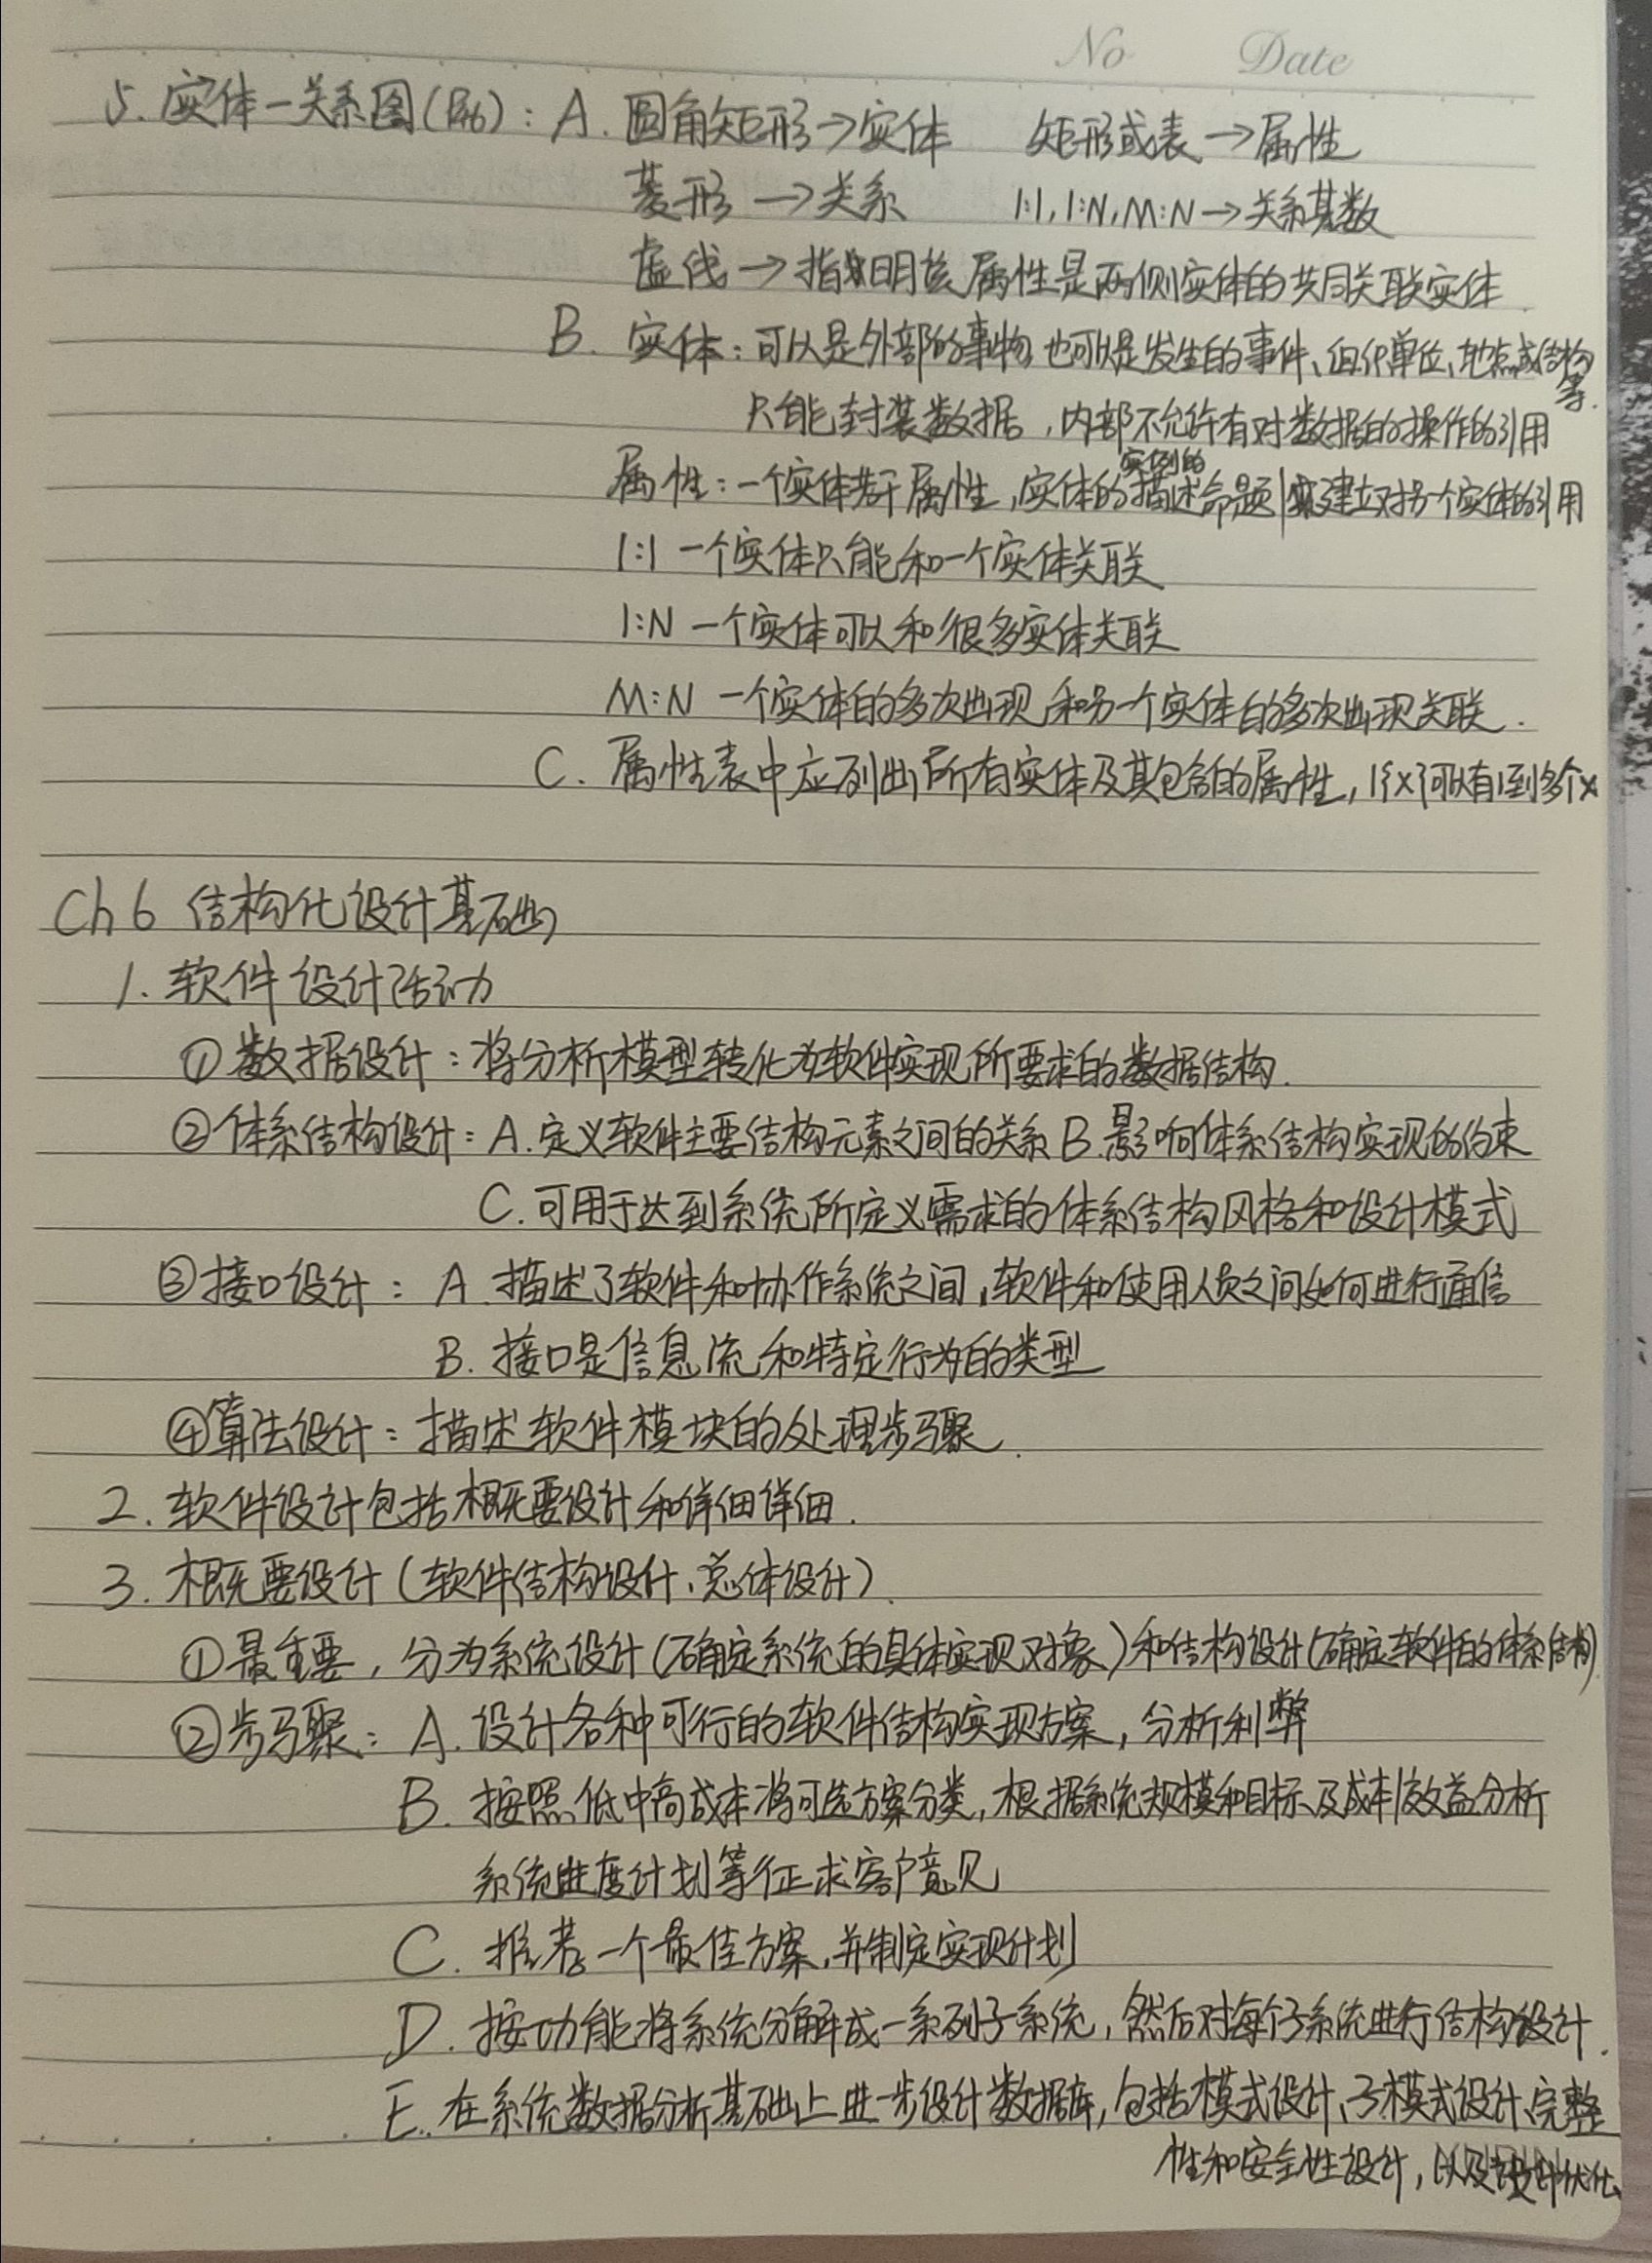 No Date
5. 实体-关系图(P46): A. 圆角矩形→实体 矩形或表→属性
菱形→关系 1:1,1:N,M:N→关系基数
虚线→指明该属性是两侧实体的共同关联实体
B. 实体:可以是外部的事物,也可以是发生的事件、组织单位、地点或结构等.
只能封装数据,内部不允许有对数据的操作的引用
属性:一个实体若干属性,实体的实例的描述命题|建立对另一个实体的引用
1:1 一个实体只能和一个实体关联
1:N 一个实体可以和很多实体关联
M:N 一个实体的多次出现和另一个实体的多次出现关联.
C. 属性表中应列出所有实体及其包含的属性,1{x}可以有1到多个x
Ch6 结构化设计基础
1. 软件设计活动
①数据设计:将分析模型转化为软件实现所要求的数据结构.
②体系结构设计:A.定义软件主要结构元素之间的关系 B.影响体系结构实现的约束
C.可用于达到系统所定义需求的体系结构风格和设计模式
③接口设计: A.描述了软件和协作系统之间,软件和使用人员之间如何进行通信
B. 接口是信息流和特定行为的类型
④算法设计:描述软件模块的处理步骤.
2. 软件设计包括概要设计和详细详细.
3. 概要设计(软件结构设计、总体设计).
①最重要,分为系统设计(确定系统的具体实现对象)和结构设计(确定软件的体系结构)
②步骤: A. 设计各种可行的软件结构实现方案,分析利弊
B. 按照低中高成本将可选方案分类,根据系统规模和目标及成本/效益分析
系统进度计划等征求客户意见
C. 推荐一个最佳方案,并制定实现计划
D. 按功能将系统分解成一系列子系统,然后对每个子系统进行结构设计.
E. 在系统数据分析基础上进一步设计数据库,包括模式设计、子模式设计、完整
性和安全性设计,以及设计优化